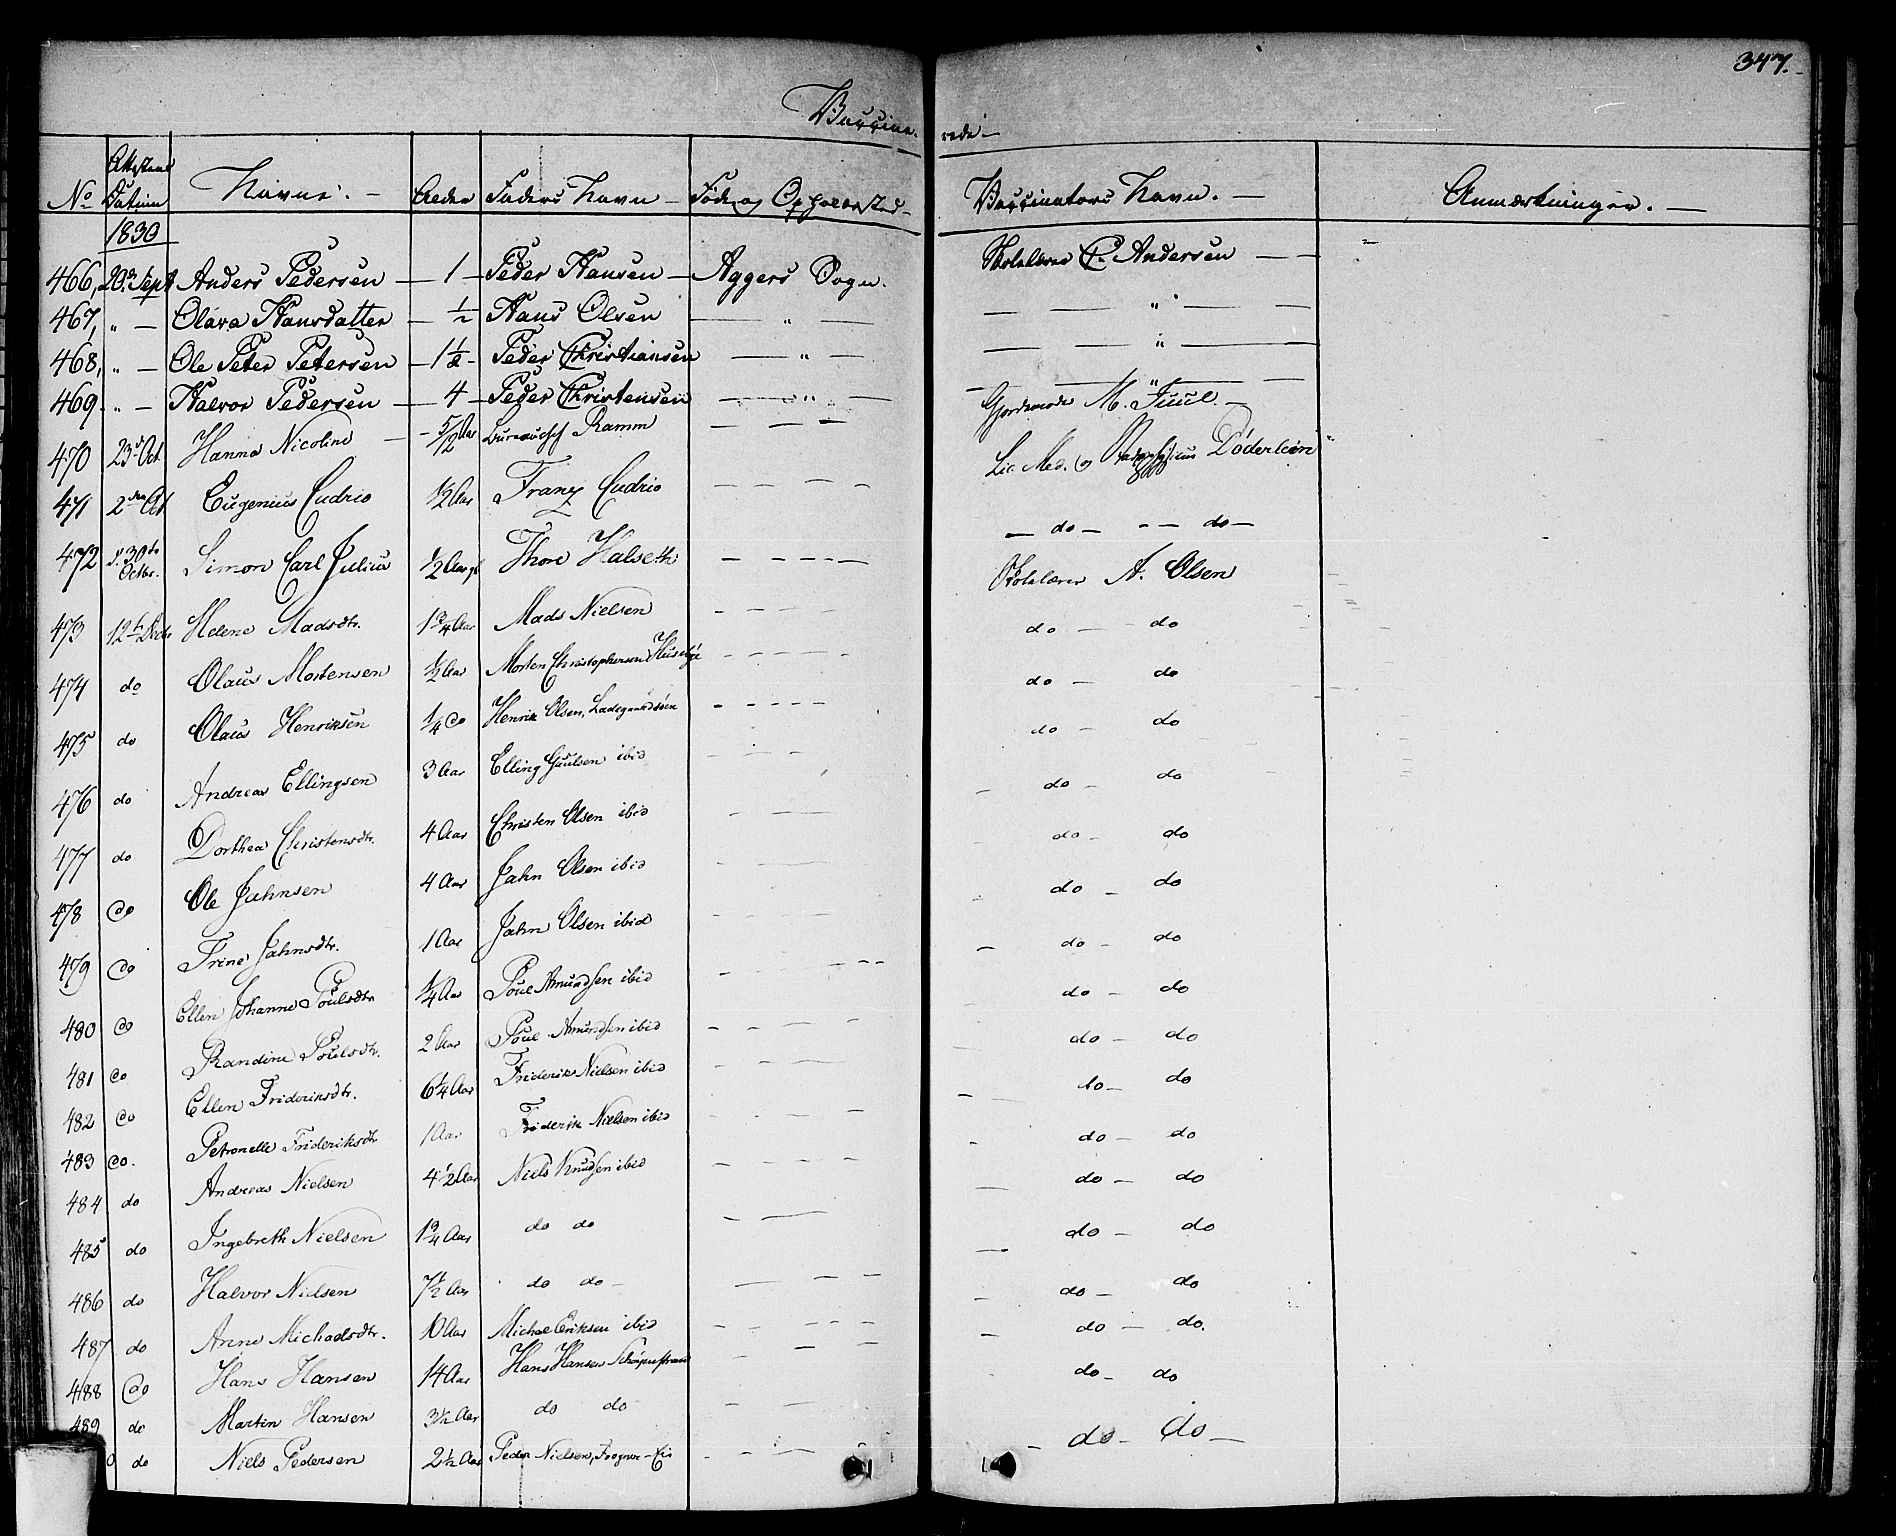 347.
Vaccine- rede
No Attestens Datum Navne. Alder Faders Navn Føde og Opholdssted Vaccinators Navn. Anmærkninger.
1830
466, 20d Sept Anders Pedersen — 1 — Peder Hansen — Aggers Sogn. Skolelærer C. Andersen — —
467, " — Olava Hansdatter — ½ Hans Olsen — " — — — " —
468, " — Ole Peter Petersen — 1½ - Peder Christiansen — " — — — " —
469. " — Halvor Pedersen — 4 — Peder Christensen — " — — — " —
Gjordemoder M. Juul. —
470 23d Oct. Hanna Nicoline — 5/12 Aar Bureauchef Ramm — — — Lic. Med. og Stadsphysicus Døderlein
471 2den Oct Eugenius Cudrio ½ Aar Franz Cudrio — — — — do — — — do —
472 d. 30te Octbr. Simon Carl Julius ½ Aar gl Thore Halseth — — — Skolelærer A. Olsen
473 12t Decbr Helene Madsdtr. 1¾ Aar Mads Nielsen — — — — do — do
474 do Olaus Mortensen ½ Aar Morten Christophersen Huseby — — — — do — do
475 do Olaus Henriksen ¼ do Henrik Olsen, Ladegaardsøen — — — — do — do
476 do Andreas Ellingsen 3 Aar Elling Paulsen ibid — — — do — do
477 do Dorthea Christensdtr. 4 Aar Christen Olsen ibid — — — do — do
478 do Ole Jahnsen 4 Aar Jahn Olsen ibid — — do — do
479 do Trine Jahnsdtr. 1 Aar Jahn Olsen ibid — — — do — do
480 do Ellen Johanne Poulsdtr ¼ Aar Poul Amundsen ibid — — — do — do
481 do Randine Poulsdtr. 2 Aar Poul Amundsen ibid — — — do — do
482 do Ellen Frideriksdtr. 6¼ Aar Friderik Nielsen ibid — — — do — do
483 do. Petronelle Frideriksdtr 1 Aar Friderik Nielsen ibid — — — do — do
484 do Andreas Nielsen 4½ Aar Niels Knudsen ibid — — — do — do
485 do Ingebreth Nielsen 1¾ Aar do do — — do — do
486 do Halvor Nielsen 7½ Aar do do — — — — do — do
487 do Anne Michaelsdtr. 10 Aar Michael Eriksen ibid — — — do — do.
488 do Hans Hansen 14 Aar Hans Hansen — — — do — do
489 do Martin Hansen 3½ Aar do do — — —
0 do Niels Pedersen 2½ Aar Peder Nielsen, Frogner-Eie — — — — do — do —